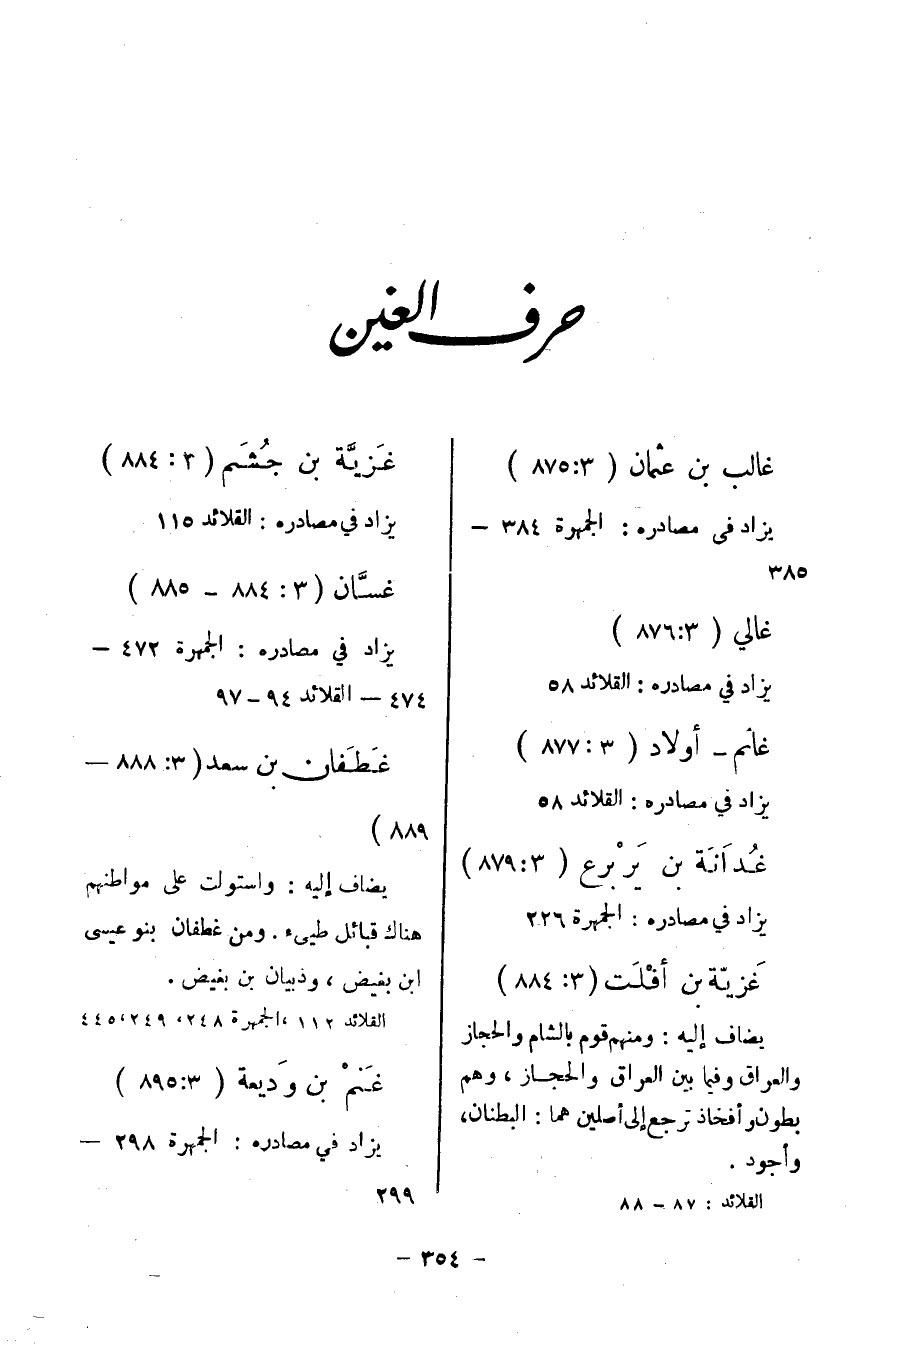 حرف الغين
غالب بن عثمان ( ٣:٨٧٥ )
يزاد في مصادره : الجمهرة ٣٨٤ –
٣٨٥
غالي ( ٣:٨٧٦ )
يزاد في مصادره : القلائد ٥٨
غانم – أولاد ( ٣ : ٨٧٧ )
يزاد في مصادره : القلائد ٥٨
غُدَانَة بن يَرْبوع ( ٣:٨٧٩ )
يزاد في مصادره : الجمهرة ٢٢٦
غَزيّة بن أفْلَت ( ٣: ٨٨٤ )
يضاف إليه : ومنهم قوم بالشام والحجاز
والعراق وفيما بين العراق والحجاز ، وهم
بطون وأفخاذ ترجع إلى أصلين هما : البطنان،
وأجود .
القلائد : ٨٧ – ٨٨
غَزيَّة بن جُشَم ( ٣ : ٨٨٤ )
يزاد في مصادره : القلائد ١١٥
غسَّان ( ٣ : ٨٨٤ – ٨٨٥ )
يزاد في مصادره : الجمهرة ٤٧٢ –
٤٧٤ – القلائد ٩٤ – ٩٧
غَطَفان بن سعد ( ٣: ٨٨٨ –
٨٨٩ )
يضاف إليه : واستولت على مواطنهم
هناك قبائل طيىء . ومن غطفان بنو عيسى
ابن بغيض ، وذبيان بن بغيض .
القلائد ١١٢ ،الجمهرة ٢٤٨، ٢٤٩، ٤٤٥
غَنَمْ بن وَديعة ( ٣:٨٩٥ )
يزاد في مصادره : الجمهرة ٢٩٨ –
٢٩٩
– ٣٥٤ –